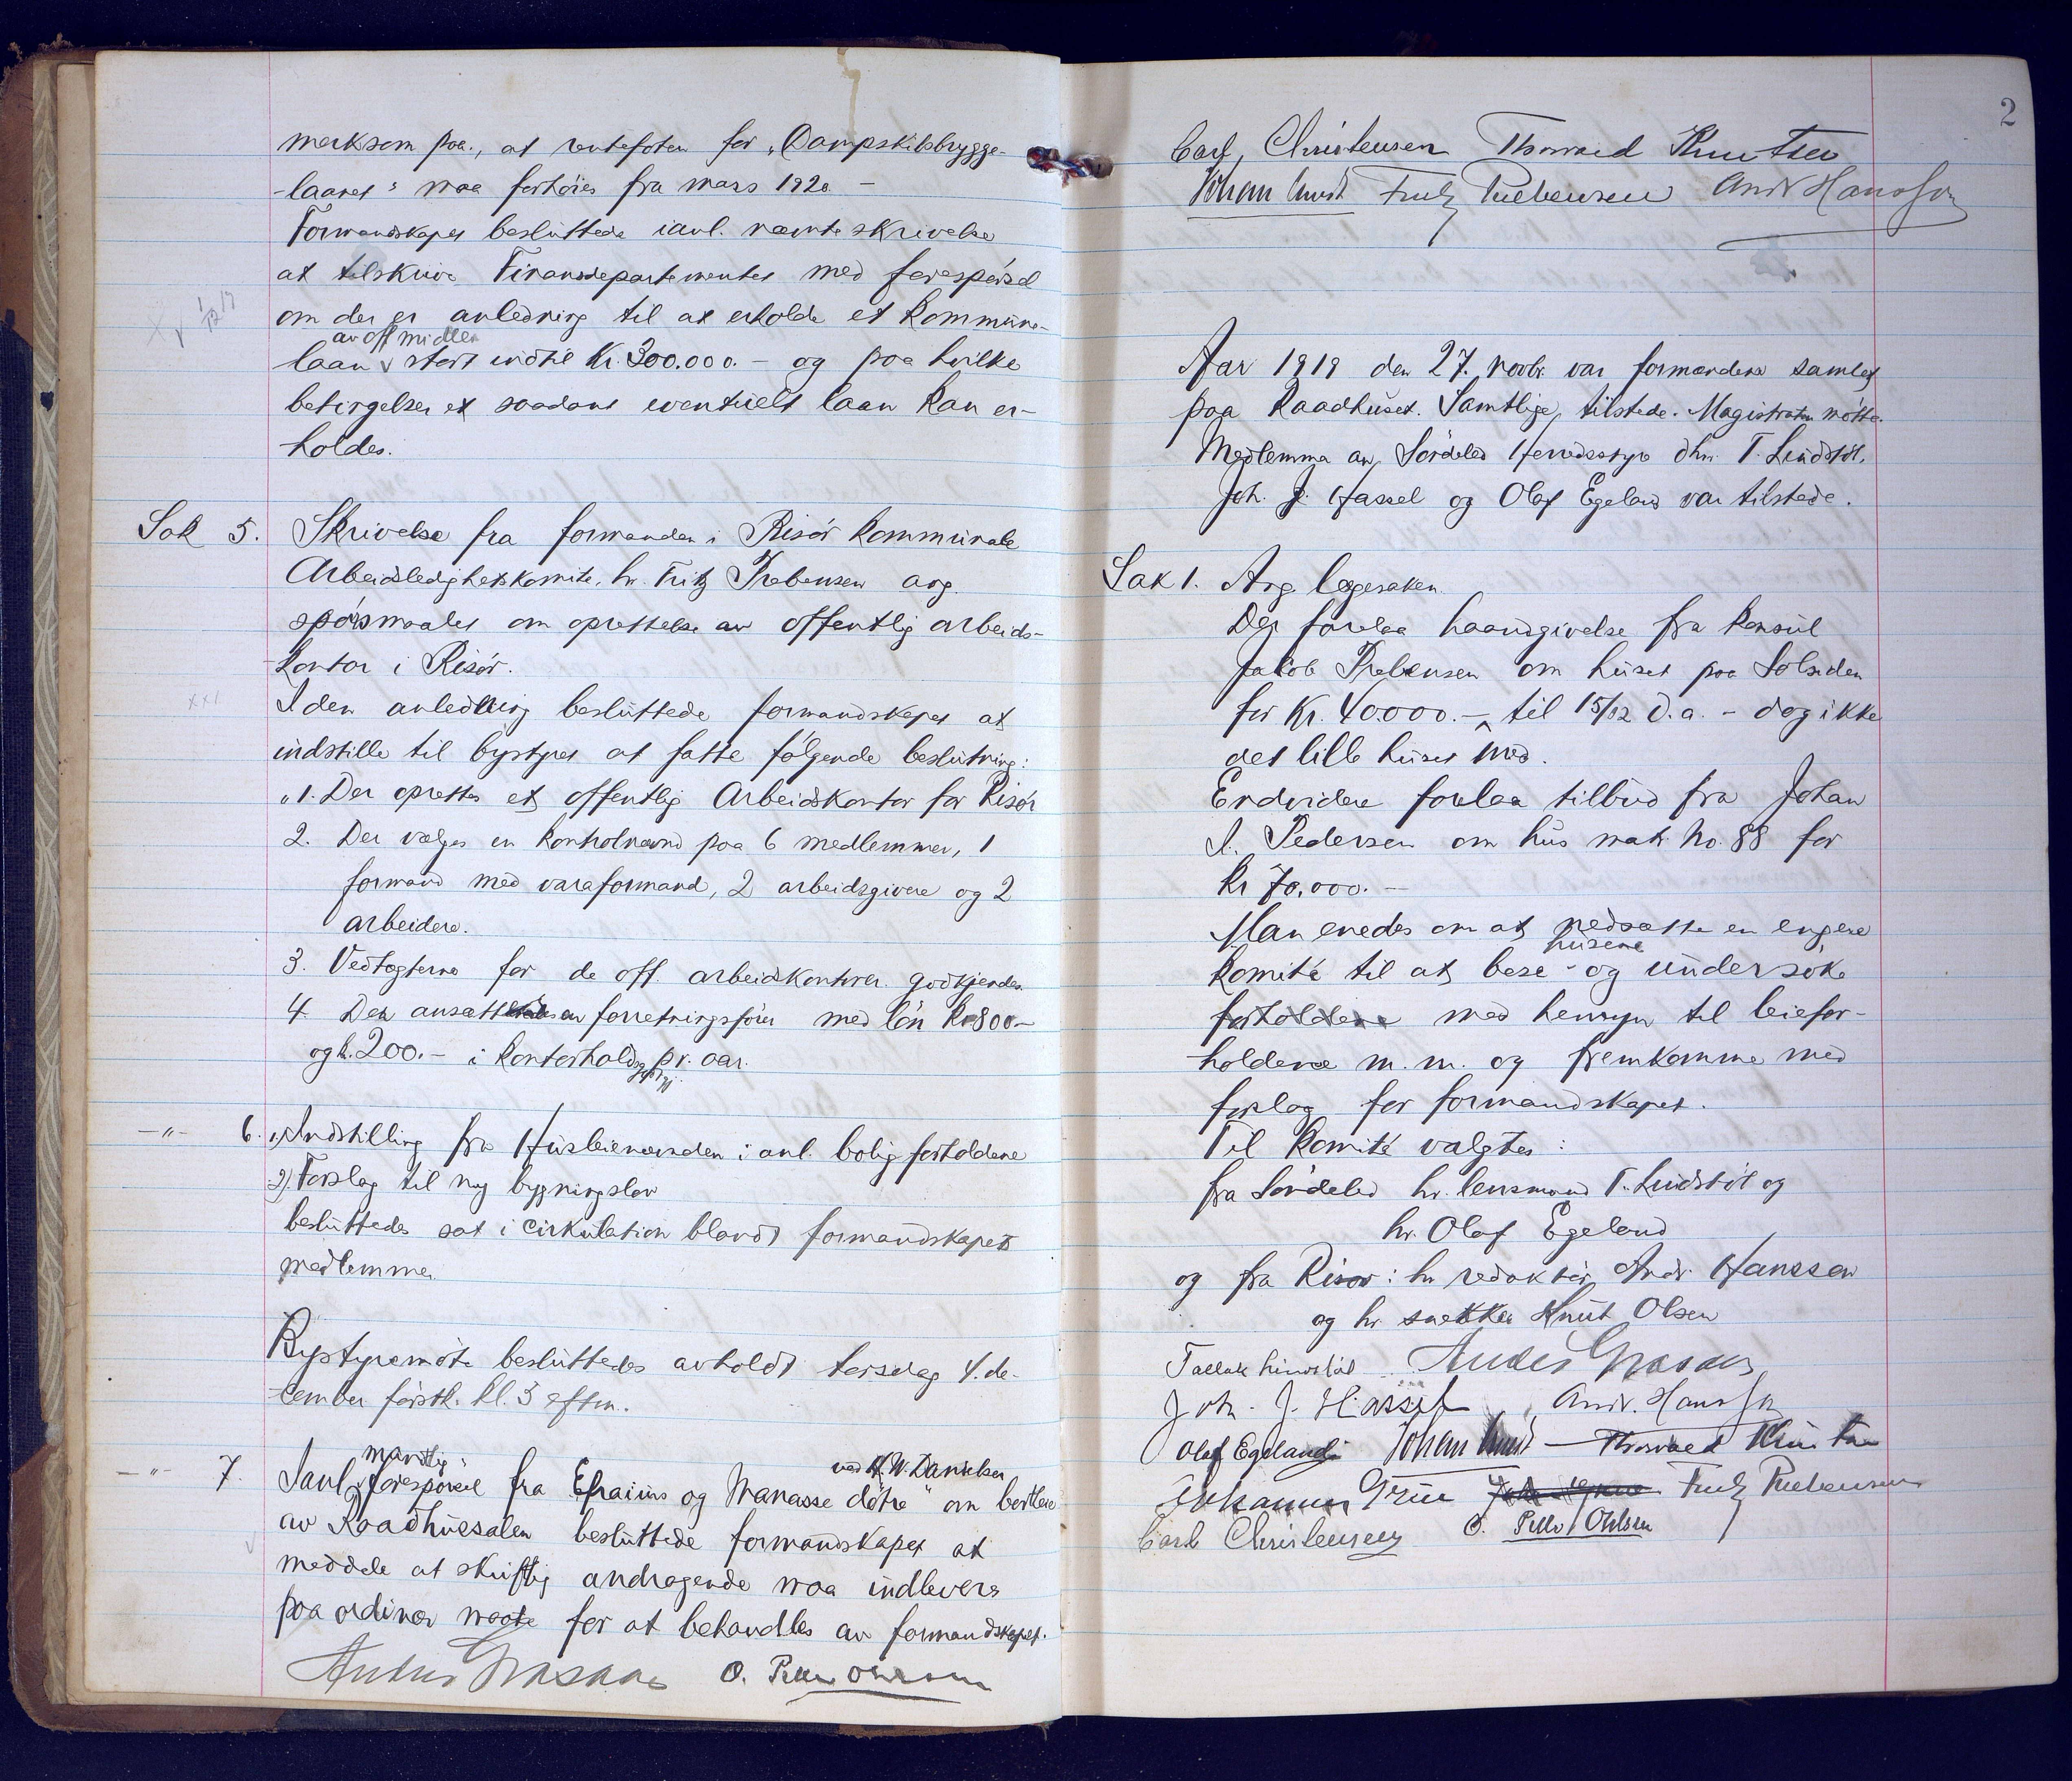 merksom paa, at rentefoten for "Dampskibsbrygge-
-laanet" maa forhöies fra mars 1920 -
Formandskapet besluttede i anl. nævnte skrivelse
at tilskrive Finansdepartementet med forespørsel
om der er anledning til at erholde et kommune-
av off midler
laan v stort indtil Kr. 300.000.- og paa hvilke
betingelser et saadant eventuelt laan kan er-
holdes.
Sak 5. Skrivelse fra formanden i Risör kommunale
Arbeidsledighetskomite, hr. Fritz Prebensen ang.
spörsmaalet om oprettelse av offentlig arbeids-
-kontor i Risör.
I den anledning besluttede formandskapet at
indstille til bystyret at fatte fölgende beslutning:
"1. Der oprettes et offentlig Arbeidskontor for Risör
2. Der vælges en kontrolnævnd paa 6 medlemmer, 1
formand med varaformand, 2 arbeidsgivere og 2
arbeidere.
3. Vedtægterne for de off. arbeidskontorer godkjendes
4. Der ansættes en forretningsförer med lön Kr 800.-
og k. 200.- i kontorholdsgodtgj. pr. aar.
-"- 6. 1) Indstilling fra Husleienævnden i anl. boligforholdene
2). Forslag til ny bygningslov
besluttedes sat i cirkulation blandt formandskapets
medlemmer.
Bystyremöte besluttedes avholdt torsdag 4. de-
-cember förstk. kl. 3 eftm.
-"- 7. I anl. mundtlig forespörsel fra "Efraims og Manasse döttre" ved H. W. Danielsen om bortleie
av Raadhussalen besluttede formandskapet at
meddele at skriftlig andragende maa indleveres
paa ordinær maate for at behandles av formandskapet.
Anders Grasaas O. Pello Ohlsen
2
Carl Christensen Thorvald Knutsen
Johan Lund Fritz Prebensen Andr Hanssen
Aar 1919 den 27. novbr. var formændene samlet
paa Raadhuset. Samtlige tilstede. Magistraten mötte.
Medlemma av Söndeled Herredsstyre dhrr. T. Lindstöl,
Joh. J. Hassel og Olaf Egeland var tilstede.
Sak 1. Ang. lægesaken.
Der forelaa haandgivelse fra konsul
Jakob Prebensen om huset paa Solsiden
for Kr. 40.000.- til 15/12 d.a. - dog ikke
det lille huset med.
Endvidere forelaa tilbud fra Johan
A. Pedersen om hus matr. No. 88 for
Kr 70.000.-
Man enedes om at nedsætte en engere
husene
komité til at bese - og undersöke
forholdene med hensyn til leiefor-
holdene m.m. og fremkomme med
forslag for formandskapet.
Til komité valgtes:
fra Söndeled hr. lensmand T. Lindstöl og
hr. Olaf Egeland
og fra Risør: hr redaktör Andr. Hanssen
og hr snekker Knut Olsen
Tallak Lindstöl Anders Grasaas
Joh. J. Hassel Andr. Hanssen
Olaf Egeland Johan Lund Thorvald Knutsen
Johannes Grüe Fritz Prebensen
Carl Christensen O. Pello Ohlsen